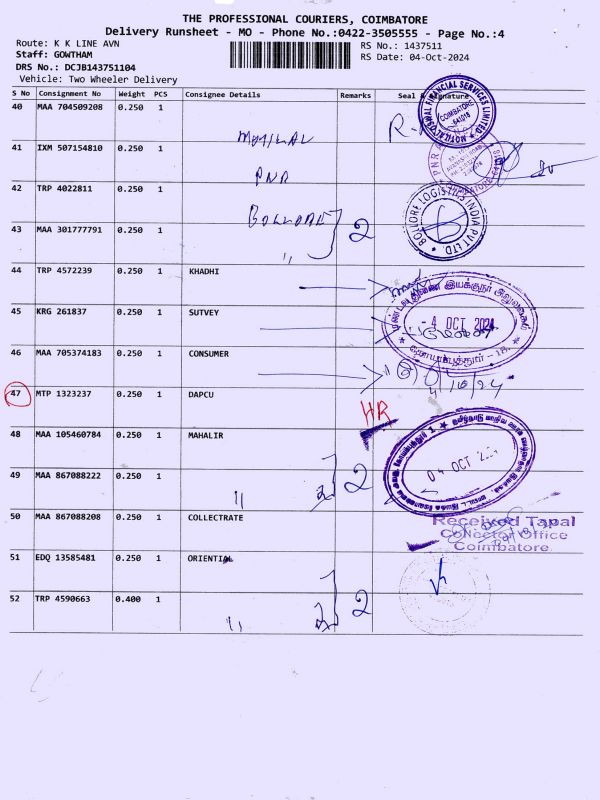 THE PROFESSIONAL COURIERS, COIMBATORE
Delivery Runsheet - MO - Phone No.:0422-3505555 - Page No.:4
Route: K K LINE AVN
RS No.: 1437511
Staff: GOWTHAM
RS Date: 04-Oct-2024
DRS No.: DCJB143751104
Vehicle: Two Wheeler Delivery
S No Consignment No Weight PCS Consignee Details Remarks Seal & Signature
40 MAA 704509208 0.250 1 MOTILAL
41 IXM 507154810 0.250 1 PNR
42 TRP 4022811 0.250 1 BOLLORE
43 MAA 301777791 0.250 1 " 2
44 TRP 4572239 0.250 1 KHADHI
45 KRG 261837 0.250 1 SUTVEY
46 MAA 705374183 0.250 1 CONSUMER
47 MTP 1323237 0.250 1 DAPCU HR
48 MAA 105460784 0.250 1 MAHALIR
49 MAA 867088222 0.250 1 " 2
50 MAA 867088208 0.250 1 COLLECTRATE
51 EDQ 13585481 0.250 1 ORIENTIAL
52 TRP 4590663 0.400 1 " 2
MOTILAL OSWAL FINANCIAL SERVICES LIMITED
COIMBATORE
641018
PNR
BOLLORE LOGISTICS INDIA PVT LTD
- 4 OCT 2024
4/10/24
04 OCT
Received Tapal
Collector Office
Coimbatore